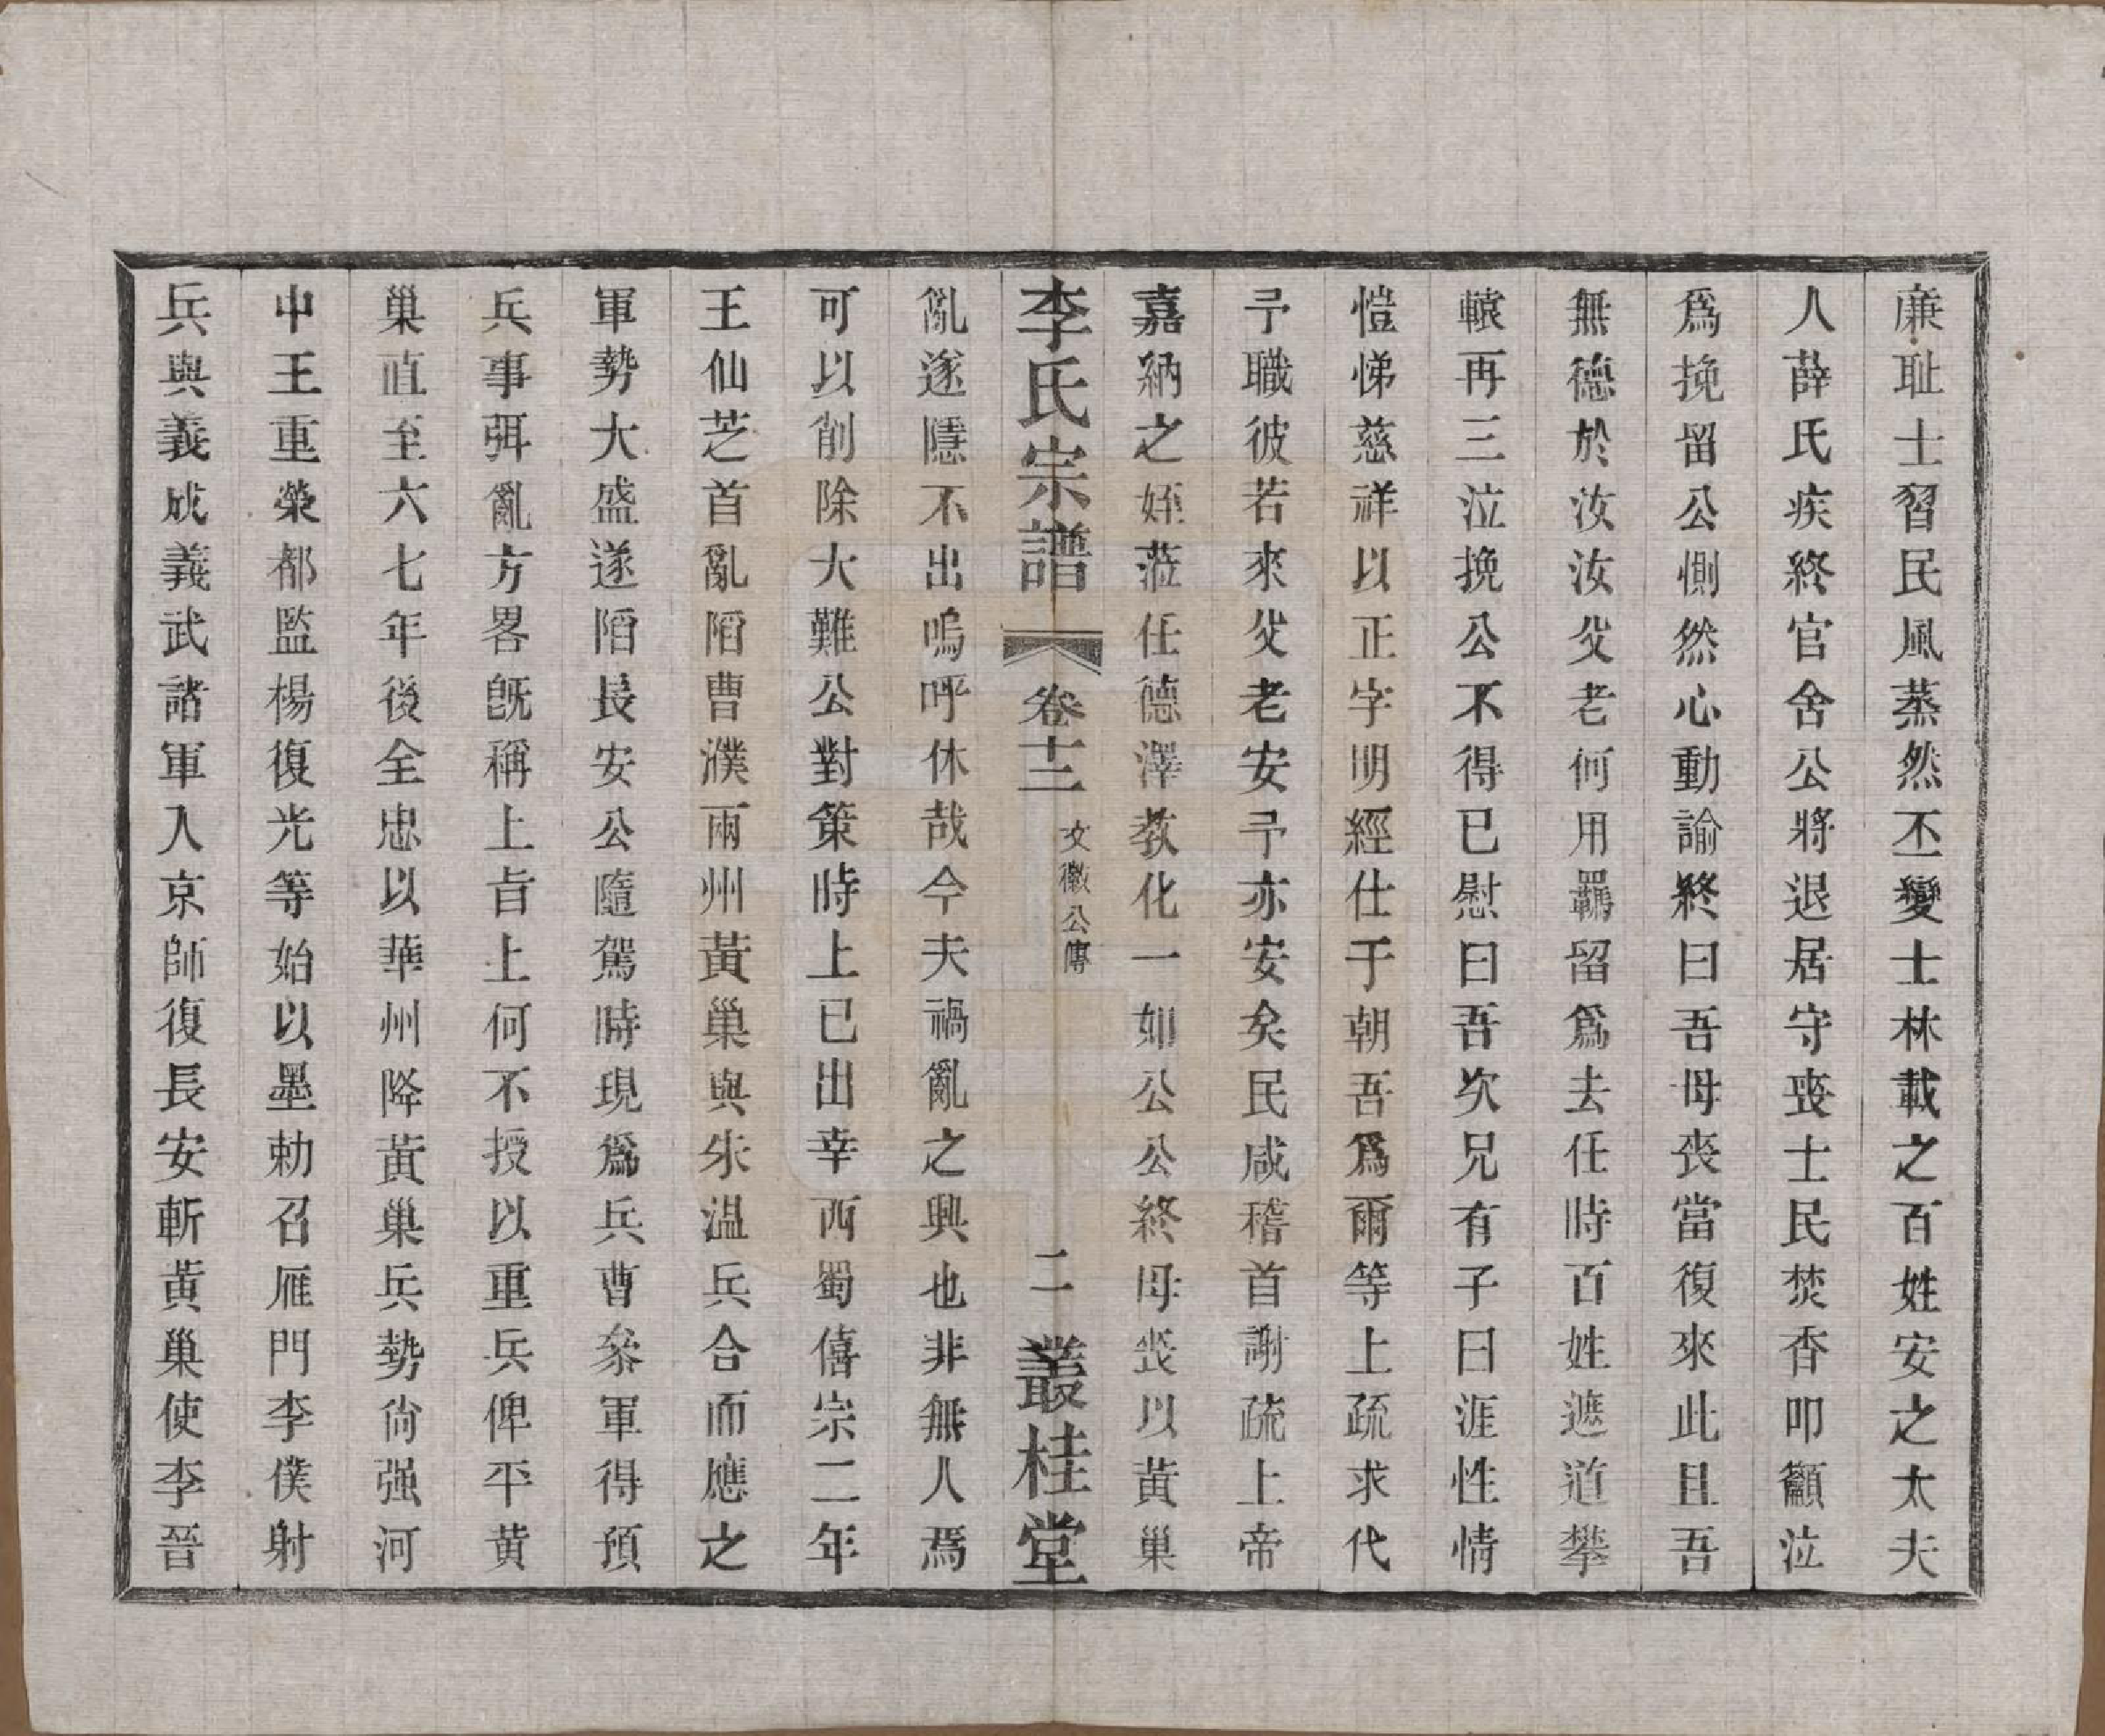 廉耻士習民風蒸然丕變士林載之百姓安之太夫
人薛氏疾終官舍公將退居守喪士民焚香叩籲泣
爲挽留公惻然心動諭終曰吾母喪當復來此且吾
無德於汝汝父老何用羈留爲去任時百姓遮道攀
轅再三泣挽公不得已慰曰吾次兄有子曰涯性情
愷悌慈祥以正字明經仕于朝吾爲爾等上疏求代
予職彼若來父老安予亦安矣民咸稽首謝疏上帝
嘉納之姪蒞任德澤教化一如公公終母喪以黃巢
李氏宗譜 卷十二 文徽公傳 二 叢桂堂
亂遂隱不出嗚呼休哉今夫禍亂之興也非無人焉
可以削除大難公對策時上已出幸西蜀僖宗二年
王仙芝首亂陷曹濮兩州黃巢與朱温兵合而應之
軍勢大盛遂陷長安公隨駕時現爲兵曹叅軍得預
兵事弭亂方畧旣稱上旨上何不授以重兵俾平黃
巢直至六七年後全忠以華州降黃巢兵勢尙强河
中王重榮都監楊復光等始以墨勅召雁門李僕射
兵與義成義武諸軍入京師復長安斬黃巢使李晉